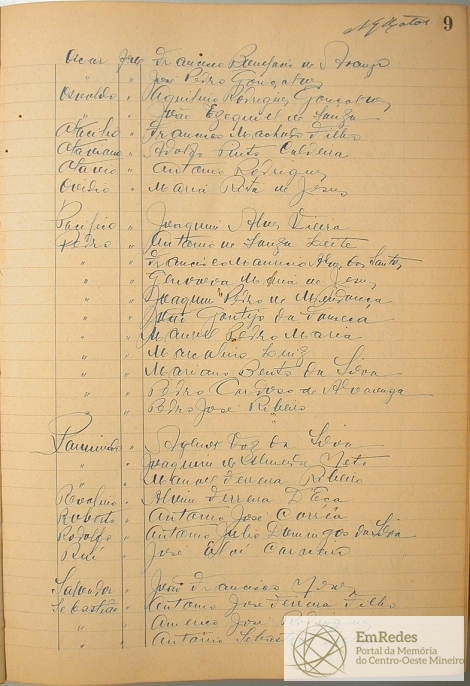 9
Oscar filho Francisco Bonifacio de Araujo
" " José Pedro Gonçalves
Osvaldo " Aquilino Rodrigues Gonçalves
" " João Ezequiel de Souza
Otacilio " Francisco Machado Filho
Otaviano " Adolfo Pinto Caldeira
Otavio " Antonio Rodrigues
Ovidio " Maria Rita de Jesus
Pacifico " Joaquim Alves Vieira
Pedro " Antonio de Souza Leite
" " Francisco Mauricio dos Santos
" " Genoveva Maria de Jesus
" " Joaquim Pedro de Mendonça
" " José Gontijo da Fonseca
" " Manoel Pedro Maria
" " Marcolino Luiz
" " Mariano Bento da Silva
" " Pedro Cardoso de Alvarenga
" " Pedro José Ribeiro
Raimundo " Vaz da Silva
" " Joaquim de Almeida Neto
" " Manoel Ferreira Ribeiro
" Alvim Ferreira D'Eça
Roberto " Antonio José Corrêa
Rodolfo " Antonio Julio Domingos da Silva
Rui " José Eloi Carneiro
Salvador " João Francisco
Sebastião " Antonio José Ferreira Filho
" " Americo José Rodrigues
" " Antonio
EmRedes
Portal da Memória
do Centro-Oeste Mineiro